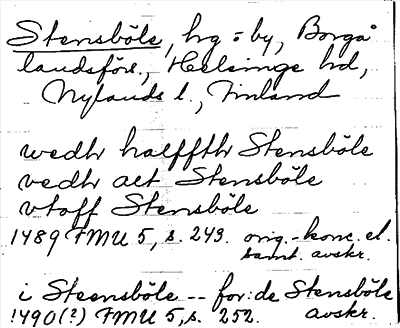 Stensböle, hg = by, Borgå
landsförs., Helsinge hd,
Nylands l., Finland
wedh halffth Stensböle
vedh alt Stensböle
vtoff Stensböle
1489 FMU 5, s. 243. orig.-konc. el.
samt. avskr.
i Steensböle -- for:de Stensböle
1490(?) FMU 5, s. 252. avskr.